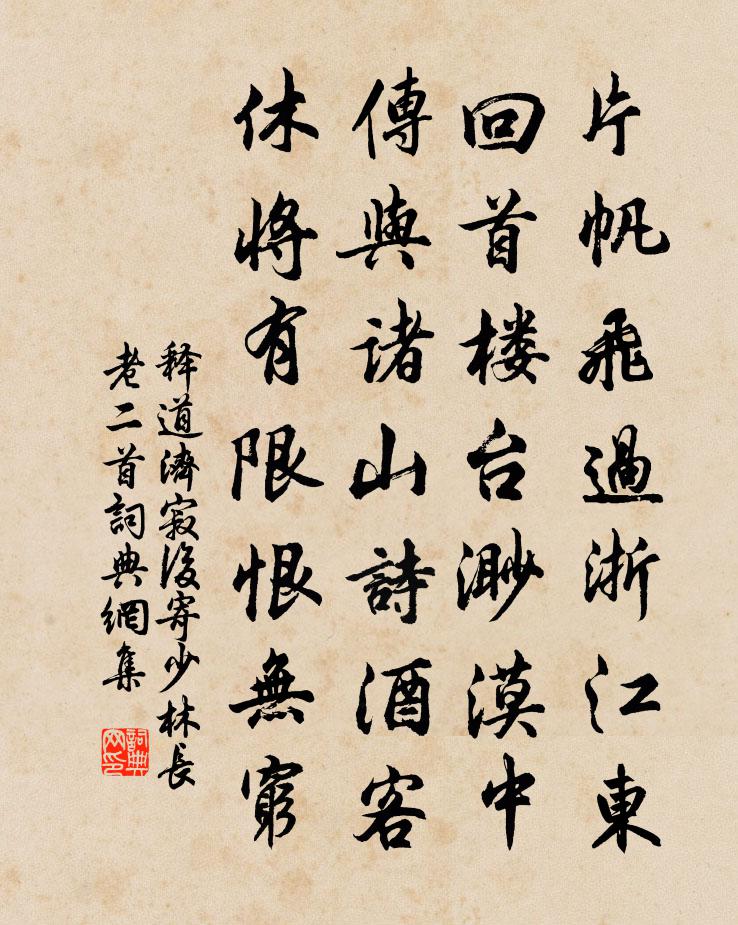 片帆飛過浙江東
回首楼台渺漠中
傳與諸山詩酒客
休將有限恨無窮
釋道濟寂後寄少林長
老二首詞典網集
詞典
网印